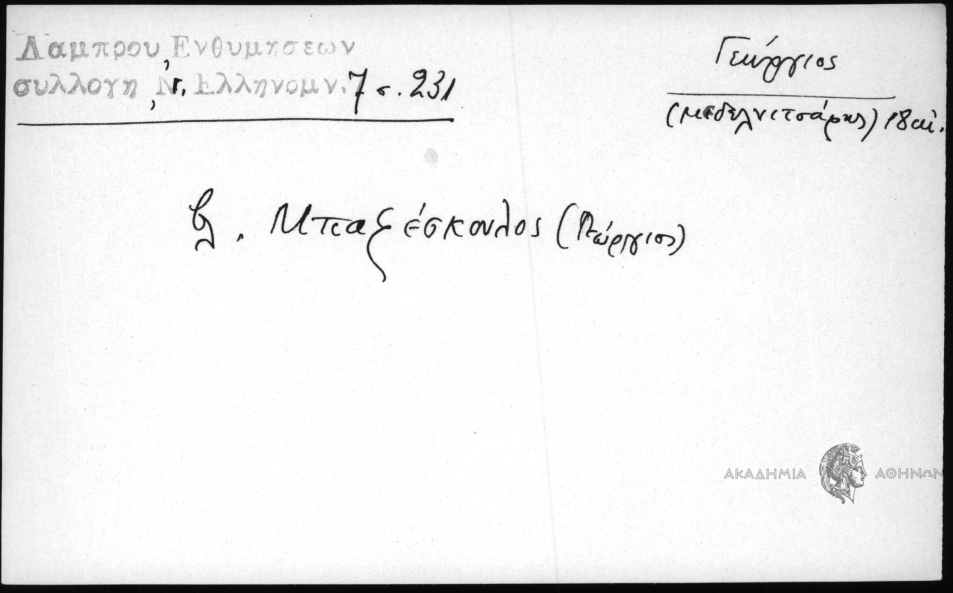 Λαμπρου, Ενθυμησεων
Γεώργιος
συλλογη, Ν. Ελληνομν. 7 σ. 231
(μεδελνιτσάρης) 18 αἰ.
βλ. Μπαξέσκουλος (Γεώργιος)
ΑΚΑΔΗΜΙΑ ΑΘΗΝΩΝ